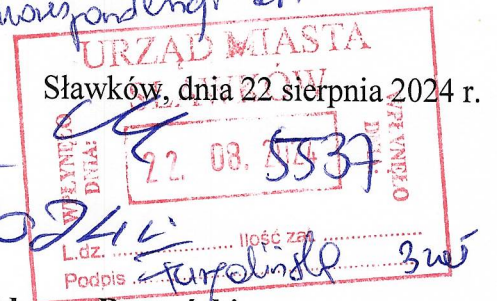 URZĄD MIASTA
SŁAWKÓW
Sławków, dnia 22 sierpnia 2024 r.
WPŁYNĘŁO
DNIA:
22. 08. 2024
5537
WPŁYNĘŁO
L.dz. Ilość zał.
Podpis 3 zał